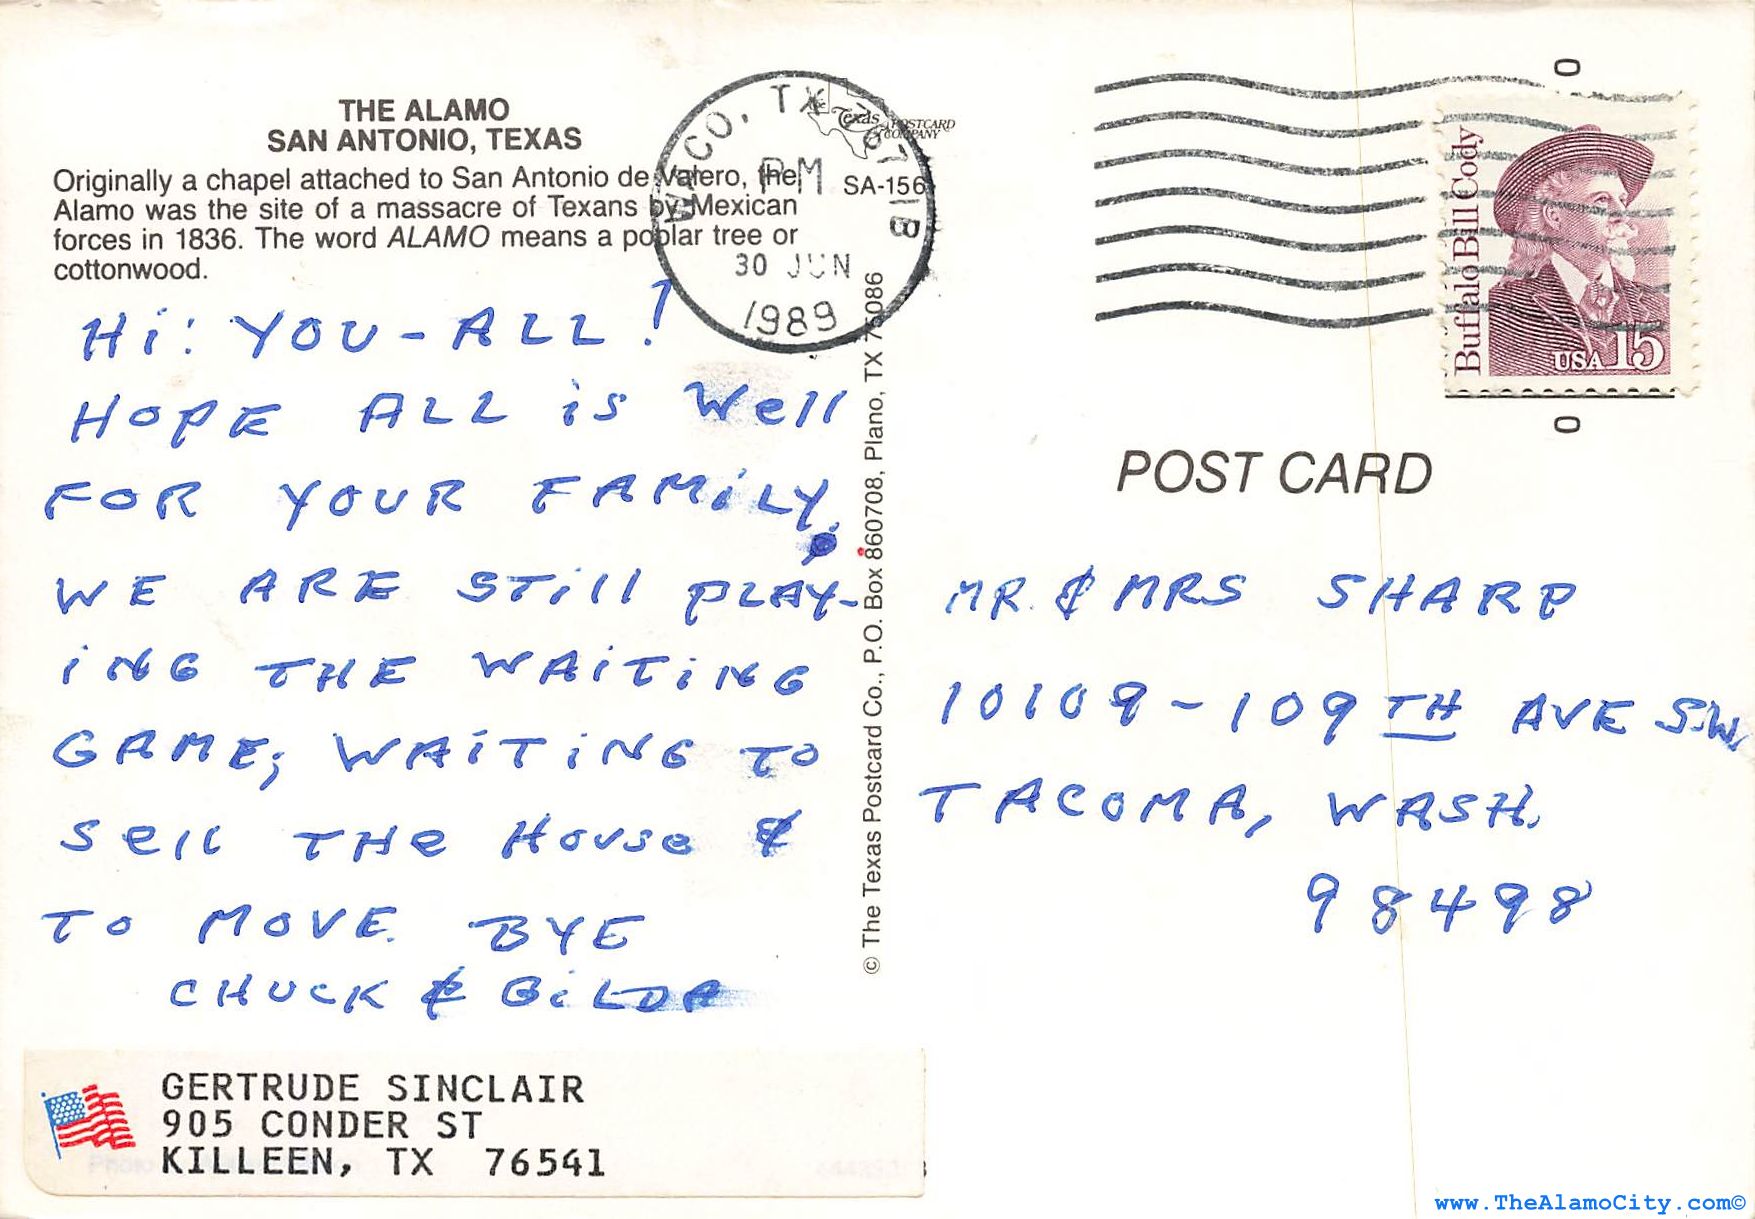 THE ALAMO
SAN ANTONIO, TEXAS
Originally a chapel attached to San Antonio de Valero, the
Alamo was the site of a massacre of Texans by Mexican
forces in 1836. The word ALAMO means a poplar tree or
cottonwood.
Texas POSTCARD
COMPANY
SA-156
WACO, TX 767 1B
PM
30 JUN
1989
Hi: YOU-ALL!
HOPE ALL is Well
FOR YOUR FAMiLY.
WE ARE STill PLAY-
iNG THE WAiTiNG
GAME; WAiTiNG TO
Sell THe House &
TO MOVE. BYE
CHUCK & GiLDA
GERTRUDE SINCLAIR
905 CONDER ST
KILLEEN, TX 76541
© The Texas Postcard Co., P.O. Box 860708, Plano, TX 75086
Buffalo Bill Cody
USA 15
0
0
POST CARD
MR. & MRS SHARP
10109-109TH AVE S.W.
TACOMA, WASH.
98498
www.TheAlamoCity.com©